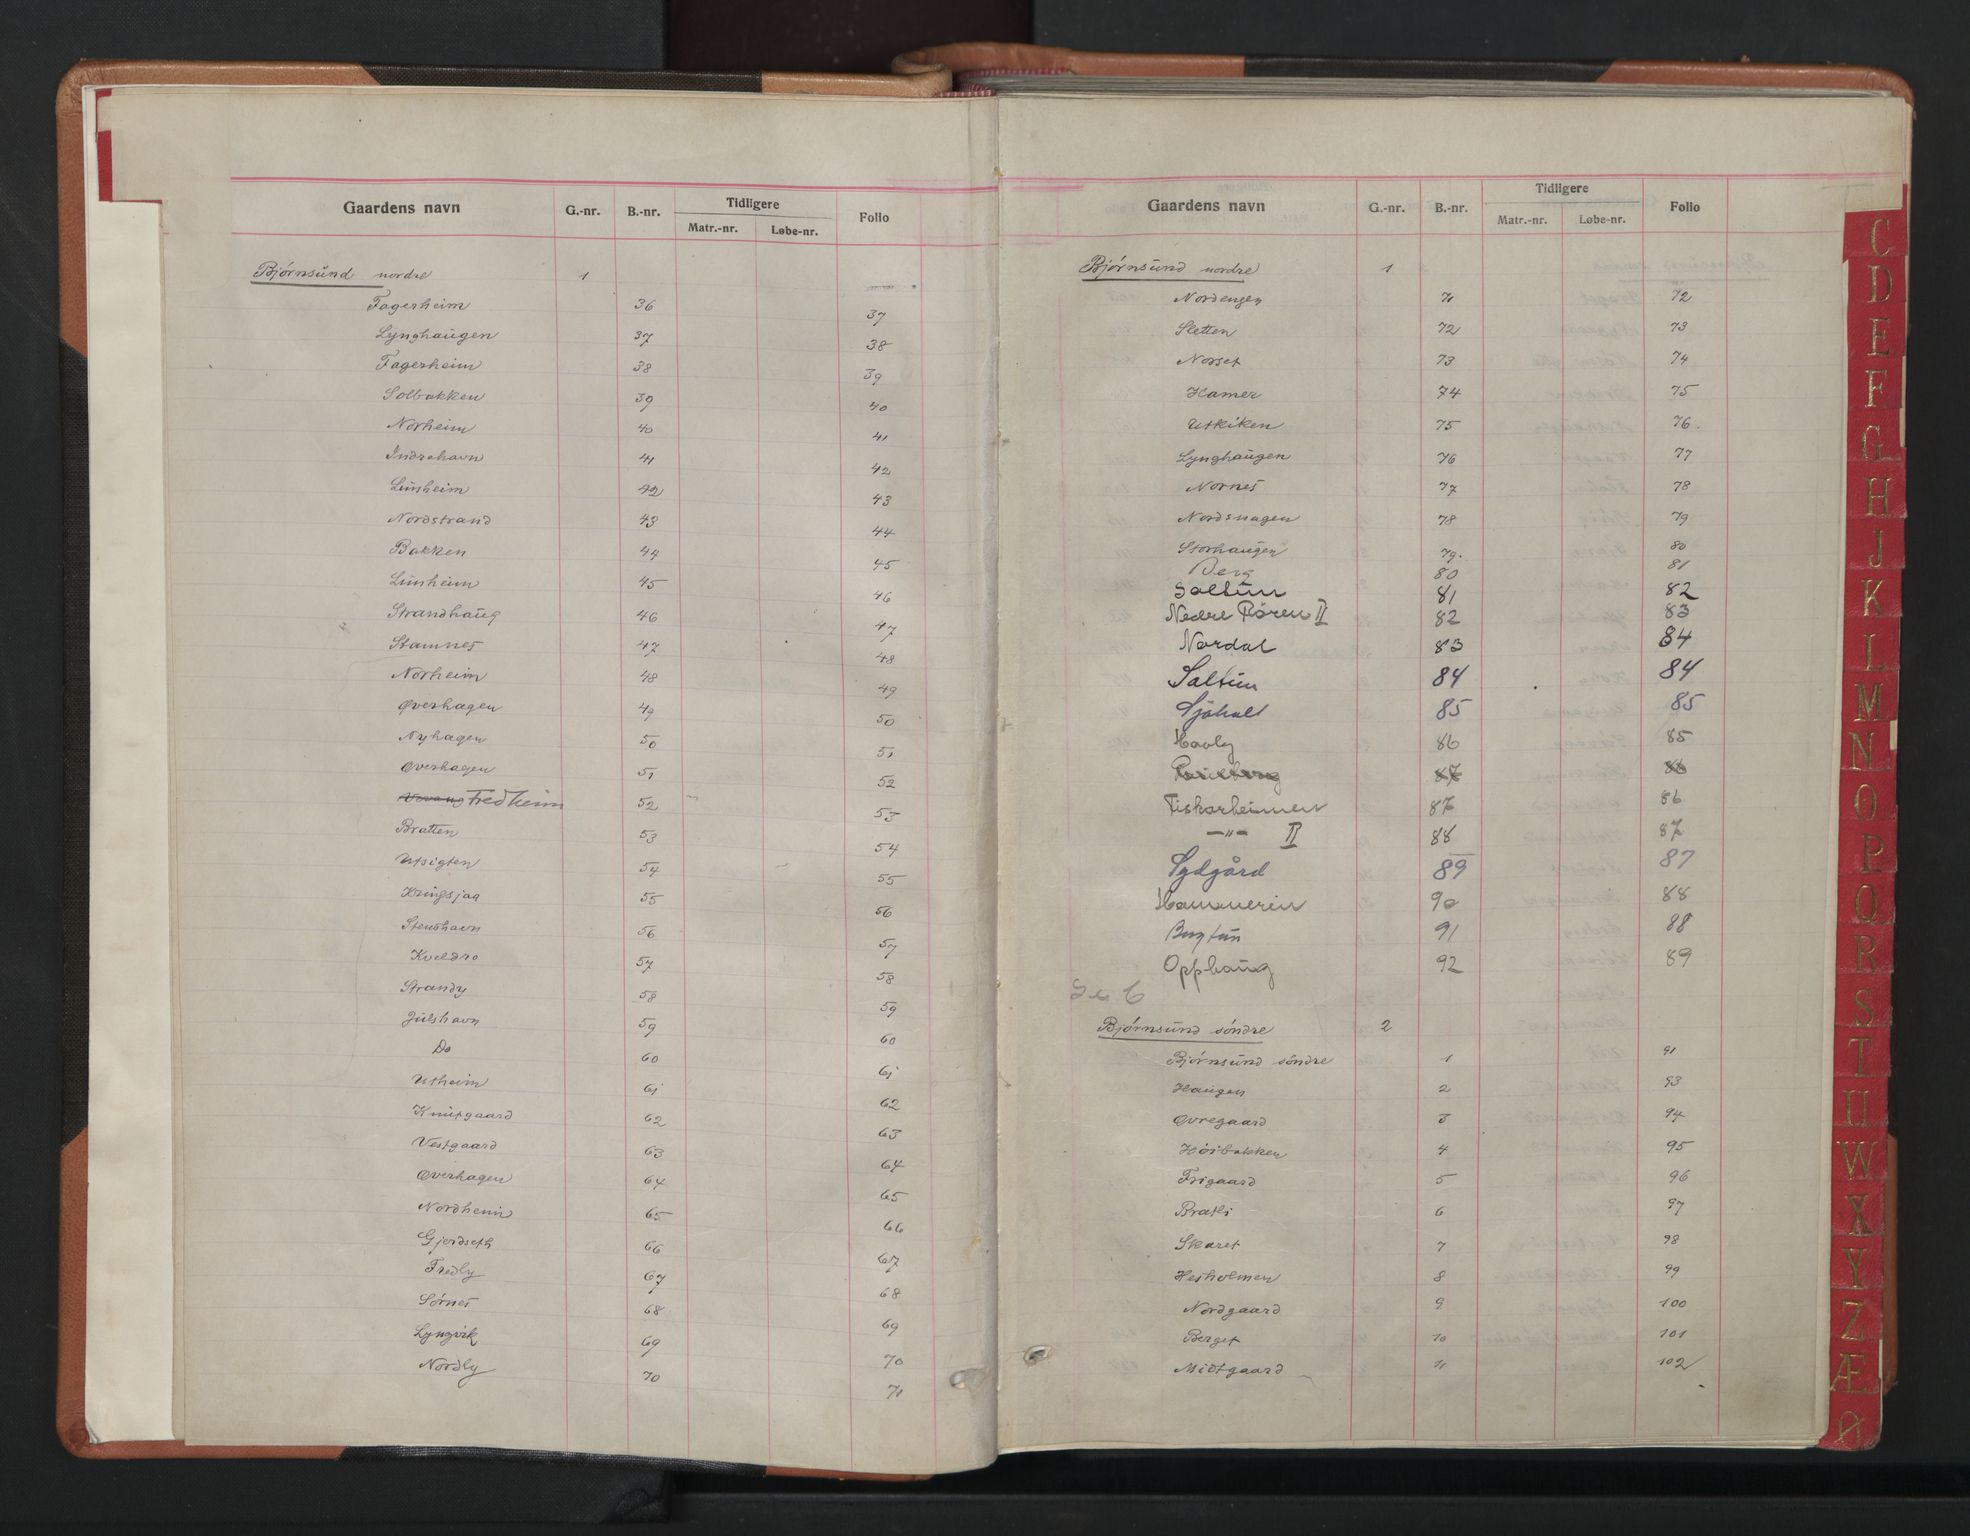 Gaardens navn G.-nr. B.-nr. Tidligere Folio
Matr.-nr. Løbe-nr.
Bjørnsund nordre 1
Fagerheim 36 37
Lynghaugen 37 38
Fagerheim 38 39
Solbakken 39 40
Norheim 40 41
Indrehavn 41 42
Lunheim 42 43
Nordstrand 43 44
Bakken 44 45
Lunheim 45 46
Strandhaug 46 47
Stamnes 47 48
Norheim 48 49
Øverhagen 49 50
Nyhagen 50 51
Øverhagen 51 52
Fredheim 52 53
Bratten 53 54
Utsigten 54 55
Kringsjaa 55 56
Stenshavn 56 57
Kveldro 57 58
Strandy 58 59
Julshavn 59 60
Do 60 61
Utheim 61 62
Knutgaard 62 63
Vestgaard 63 64
Øverhagen 64 65
Nordheim 65 66
Gjerdseth 66 67
Fredly 67 68
Sørnes 68 69
Lyngvik 69 70
Nordly 70 71
Gaardens navn G.-nr. B.-nr. Tidligere Folio
Matr.-nr. Løbe-nr.
Bjørnsund nordre 1
Nordengen 71 72
Sletten 72 73
Norset 73 74
Hamer 74 75
Utkiken 75 76.
Lynghaugen 76 77
Nornes 77 78
Nordshagen 78 79
Storhaugen 79. 80
Berg 80 81
Soltun 81 82
Nedre Røren II 82 83
Nordal 83 84
Saltun 84 84
Sjøholt 85 85
Havly 86 85
87 86
Fiskarheimen 87 86
—"— II 88 87
Sydgård 89 87
Hammeren 90 88
Bugtun 91 88
Opphaug 92 89
Se 6
Bjørnsund søndre 2
Bjørnsund søndre 1 91
Haugen 2 93
Øvregaard 3 94
Høibakken 4 95
Frigaard 5 96
Bratli 6 97
Skaret 7 98
Hesholmen 8 99
Nordgaard 9 100
Berget 10 101
Midtgaard 11 102
C
D
E
F
G
H
J
K
L
M
N
O
P
Q
R
S
T
U
W
X
Y
Z
Æ
Ø